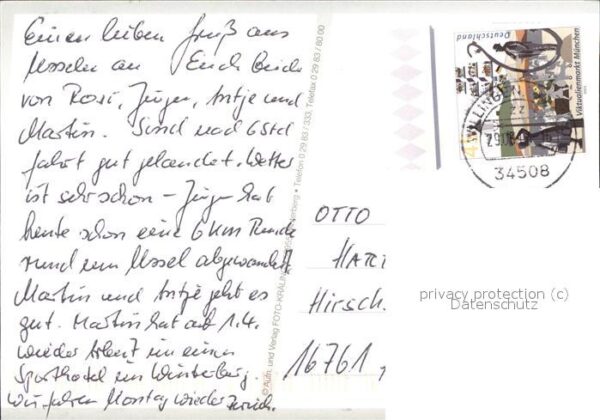 Einen lieben Gruß aus
Usseln an Euch Beide
von Rosi, Jürgen, Antje und
Martin. Sind nach 6 Std
fahrt gut gelandet. Wetter
ist sehr schön – Jürgen hat
heute schon eine 6 km Runde
rund um Ussel abgewandert
Martin und Antje geht es
gut. Martin hat ab 1.4.
wieder Arbeit in einem
Sporthotel in Winterberg.
Wir fahren Montag wieder zurück.
© Aufn. und Verlag FOTO-KRÄLING Winterberg • Telefon 0 29 83 / 333, Telefax 0 29 83 / 80 00
Deutschland
Viktualienmarkt München
WILLINGEN
34508
OTTO
HART
Hirsch
16761
privacy protection (c)
Datenschutz